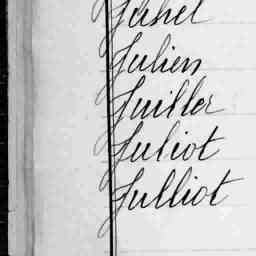 Juhel
Julien
Juiller
Juliot
Julliot